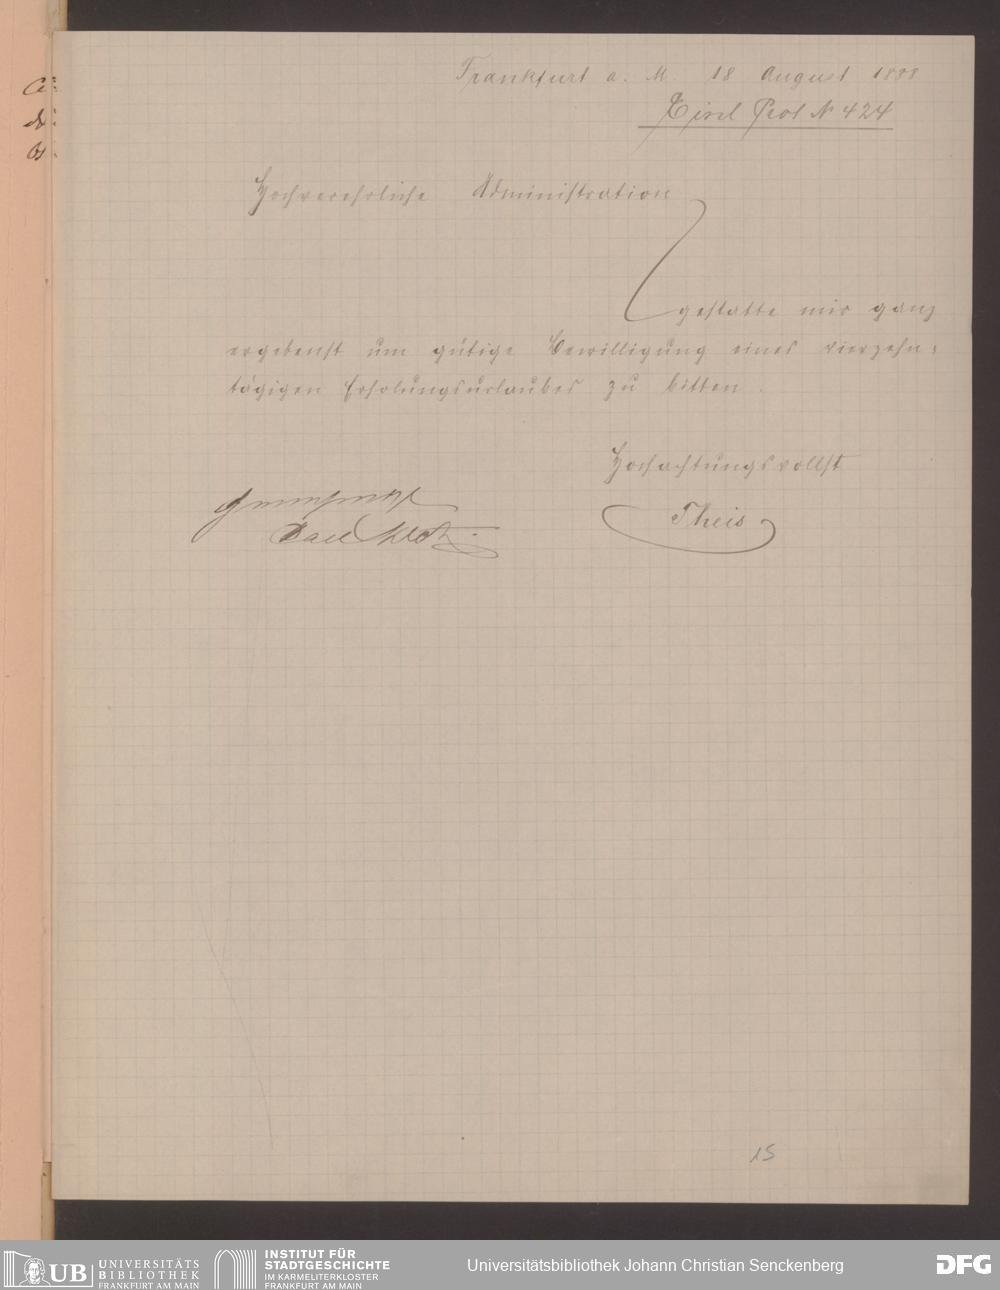 Frankfurt a. M. 18 August 1888
Prot № 424
Hochverehrliche Administration
gestatte mir ganz
ergebenst um gütige Bewilligung eines vierzehn=
tägigen Erholungsurlaubes zu bitten.
Hochachtungsvollst
Theis
genehmigt
15
UB UNIVERSITÄTS
BIBLIOTHEK
FRANKFURT AM MAIN
INSTITUT FÜR
STADTGESCHICHTE
IM KARMELITERKLOSTER
FRANKFURT AM MAIN
Universitätsbibliothek Johann Christian Senckenberg
DFG